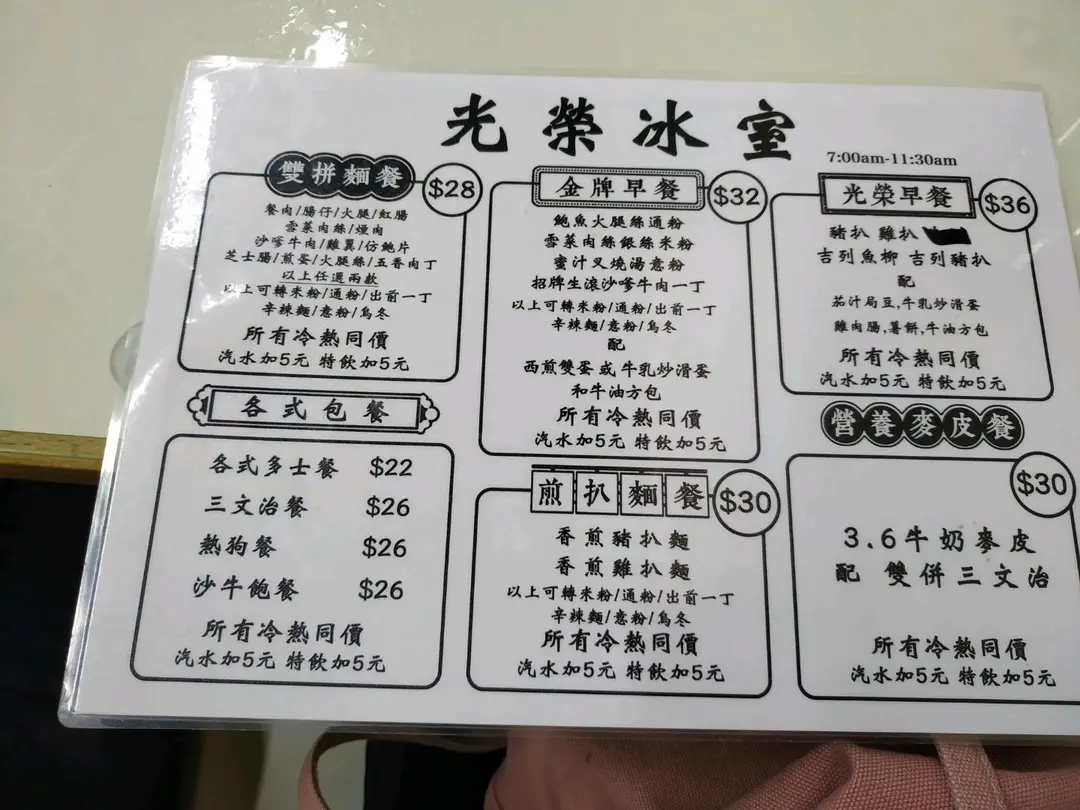 光榮冰室
7:00am-11:30am
雙拼麵餐
$28
餐肉/腸仔/火腿/紅腸
雪菜肉絲/煙肉
沙嗲牛肉/雞翼/仿鮑片
芝士腸/煎蛋/火腿絲/五香肉丁
以上任選兩款
以上可轉米粉/通粉/出前一丁
辛辣麵/意粉/烏冬
所有冷熱同價
汽水加5元 特飲加5元
各式包餐
各式多士餐 $22
三文治餐 $26
熱狗餐 $26
沙牛飽餐 $26
所有冷熱同價
汽水加5元 特飲加5元
金牌早餐
$32
鮑魚火腿絲通粉
雪菜肉絲銀絲米粉
蜜汁叉燒湯意粉
招牌生滾沙嗲牛肉一丁
以上可轉米粉/通粉/出前一丁
辛辣麵/意粉/烏冬
配
西煎雙蛋 或 牛乳炒滑蛋
和牛油方包
所有冷熱同價
汽水加5元 特飲加5元
煎扒麵餐
$30
香煎豬扒麵
香煎雞扒麵
以上可轉米粉/通粉/出前一丁
辛辣麵/意粉/烏冬
所有冷熱同價
汽水加5元 特飲加5元
光榮早餐
$36
豬扒 雞扒
吉列魚柳 吉列豬扒
配
茄汁焗豆,牛乳炒滑蛋
雞肉腸,薯餅,牛油方包
所有冷熱同價
汽水加5元 特飲加5元
營養麥皮餐
$30
3.6牛奶麥皮
配 雙併三文治
所有冷熱同價
汽水加5元 特飲加5元